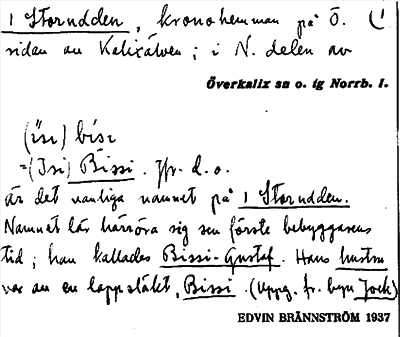 1 Storudden, kronohemman på Ö. (1
sidan av Kalixälven; i N. delen av
Överkalix sn o. tg Norrb. l.
(ısı) bisı
=(Isi) Bissi. Jfr. d. o.
är det vanliga namnet på 1 Storudden.
Namnet lär härröra sig från förste bebyggarens
tid; han kallades Bissi-Gustaf. Hans hustru
var av en lappsläkt, Bissi. (Uppg. fr. byn Jock)
EDVIN BRÄNNSTRÖM 1937